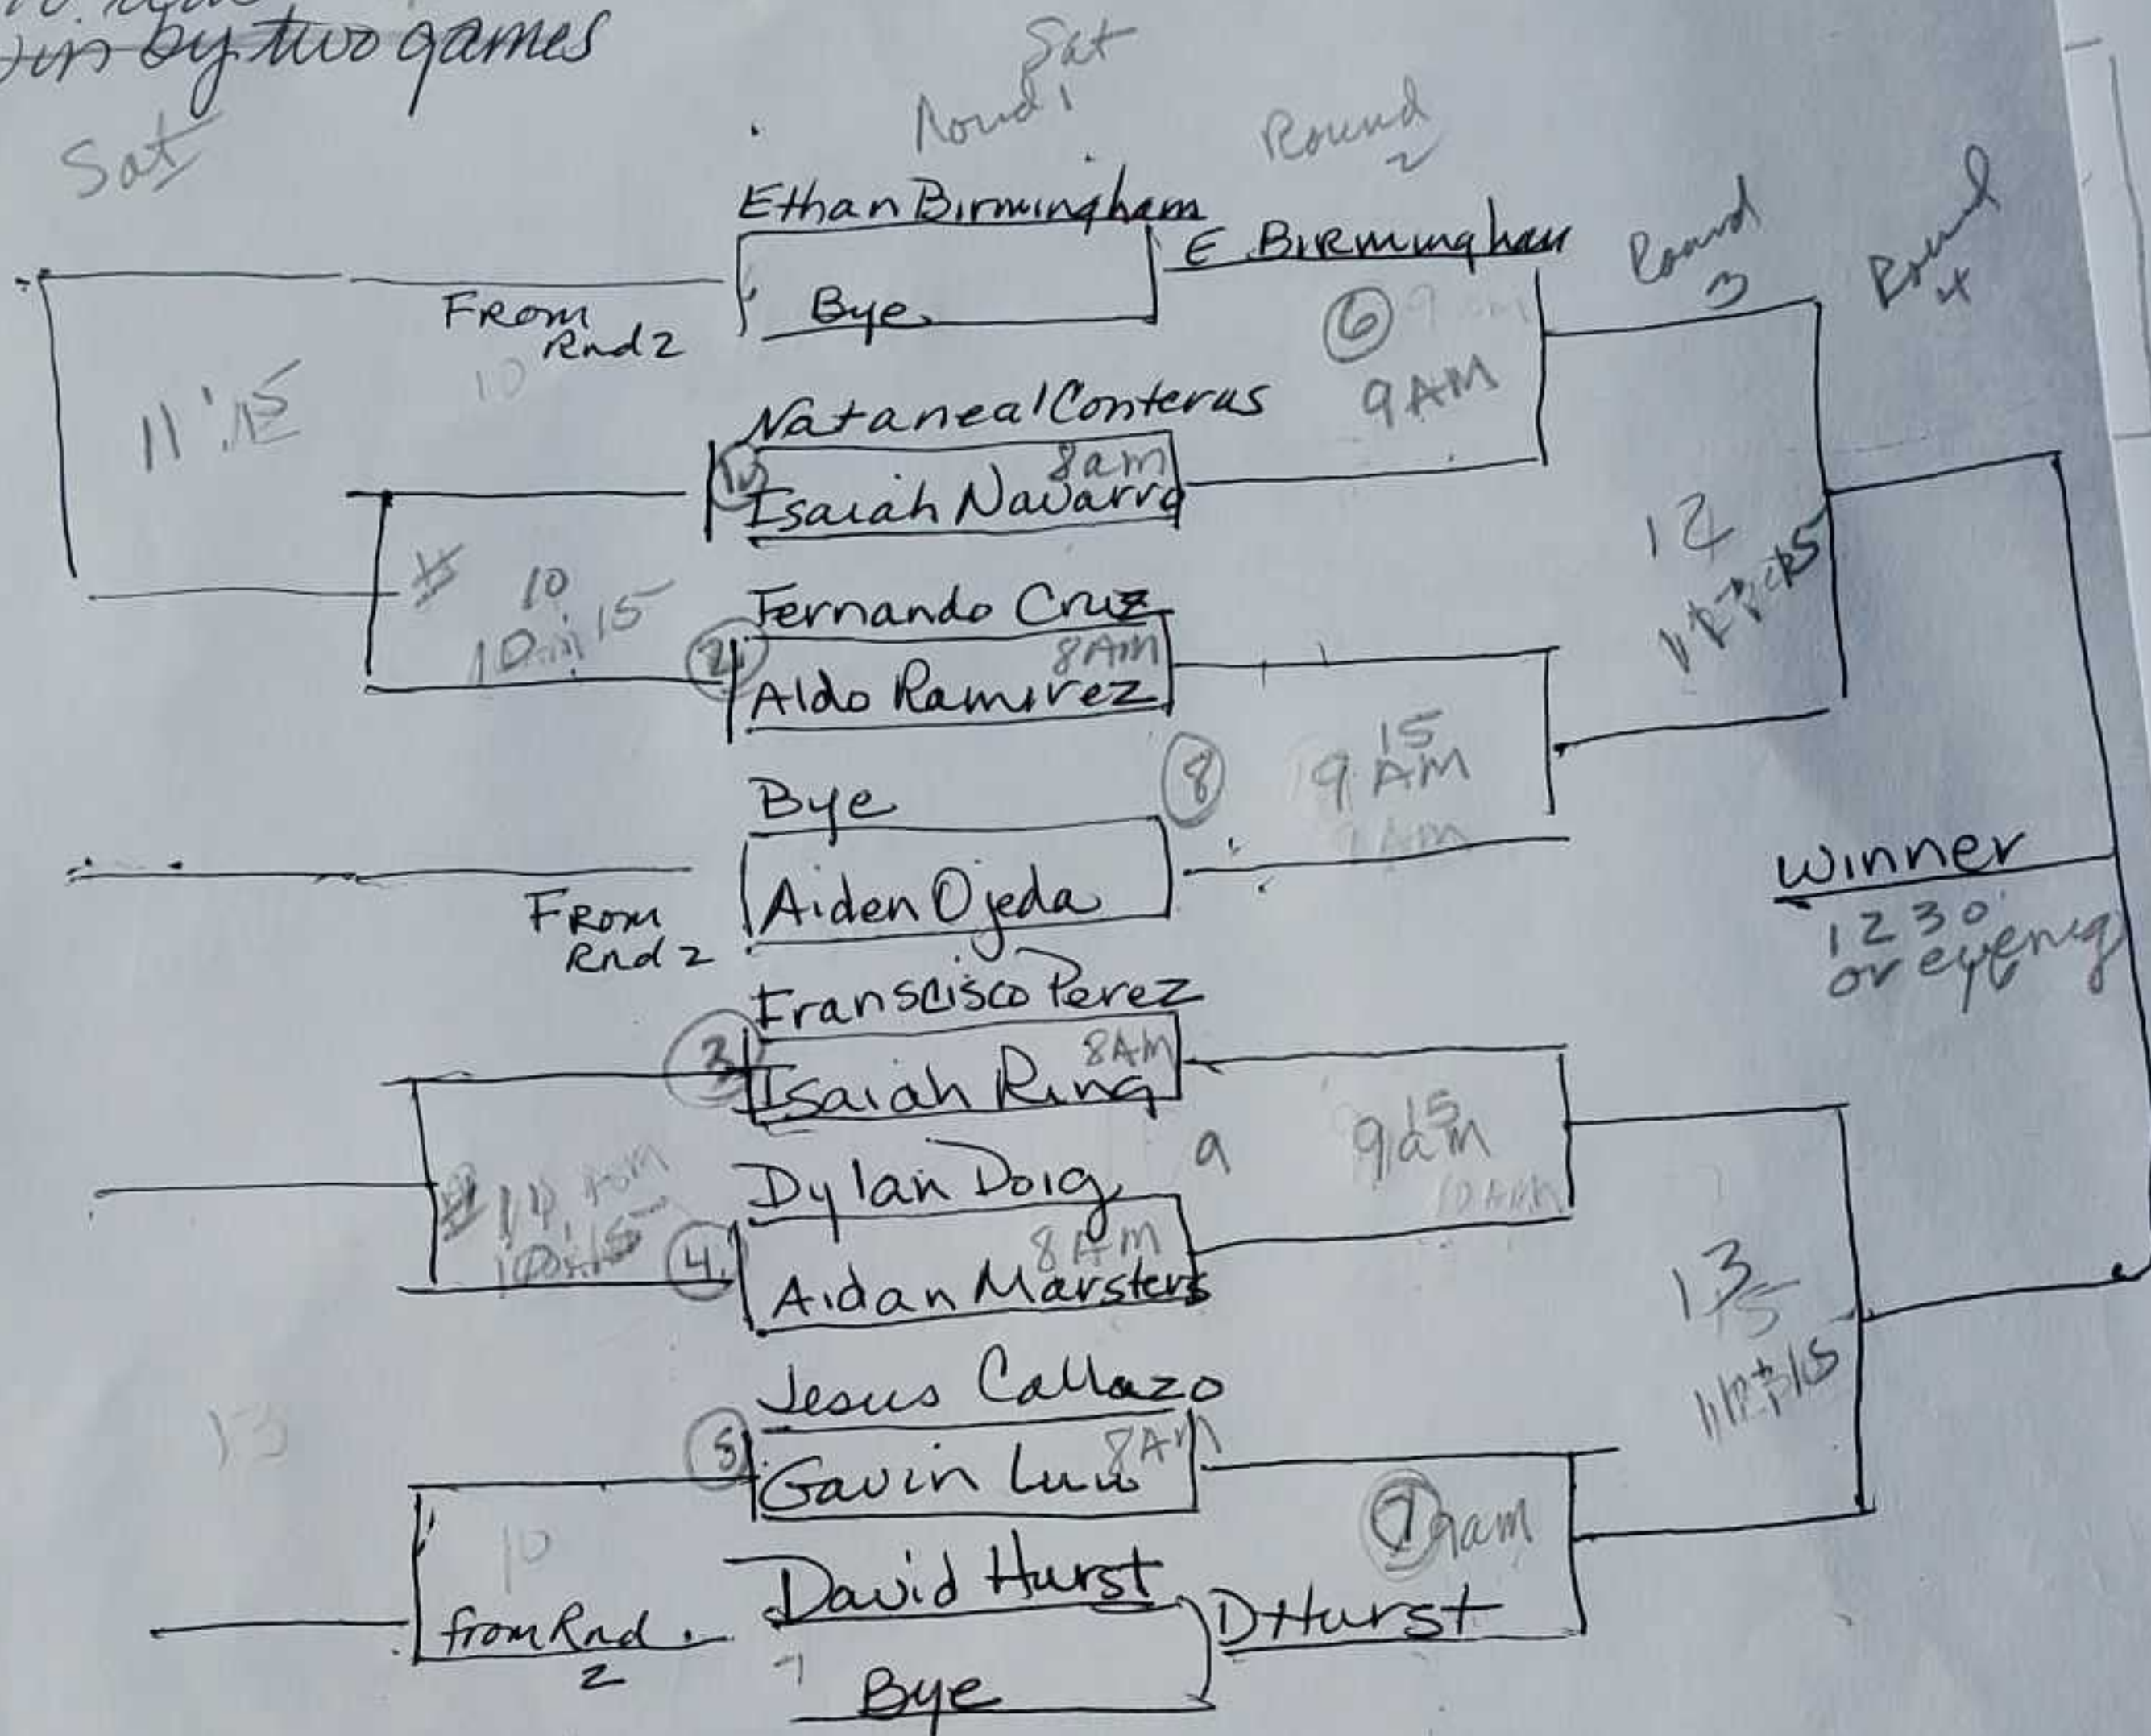 by two games
Sat
Sat
Round 1
Round 2
Round 3
Round 4
Ethan Birmingham
Bye
E Birmingham
From Rnd 2
10
6
9 AM
11:15
Nataneal Conterus
8am
Isaiah Navarro
10
10:15
Fernando Cruz
2
8AM
Aldo Ramirez
12
Bye
Aiden Ojeda
8
9 15 AM
9 AM
From Rnd 2
Winner
1230
or evening
Franscisco Perez
3
8AM
Isaiah Ring
9
9 15 am
10 AM
Dylan Doig
4.
8AM
Aidan Marsters
10:15
13
Jesus Callazo
5
8AM
Gavin Luu
7 9am
13
10
from Rnd. 2
David Hurst
D Hurst
7
Bye